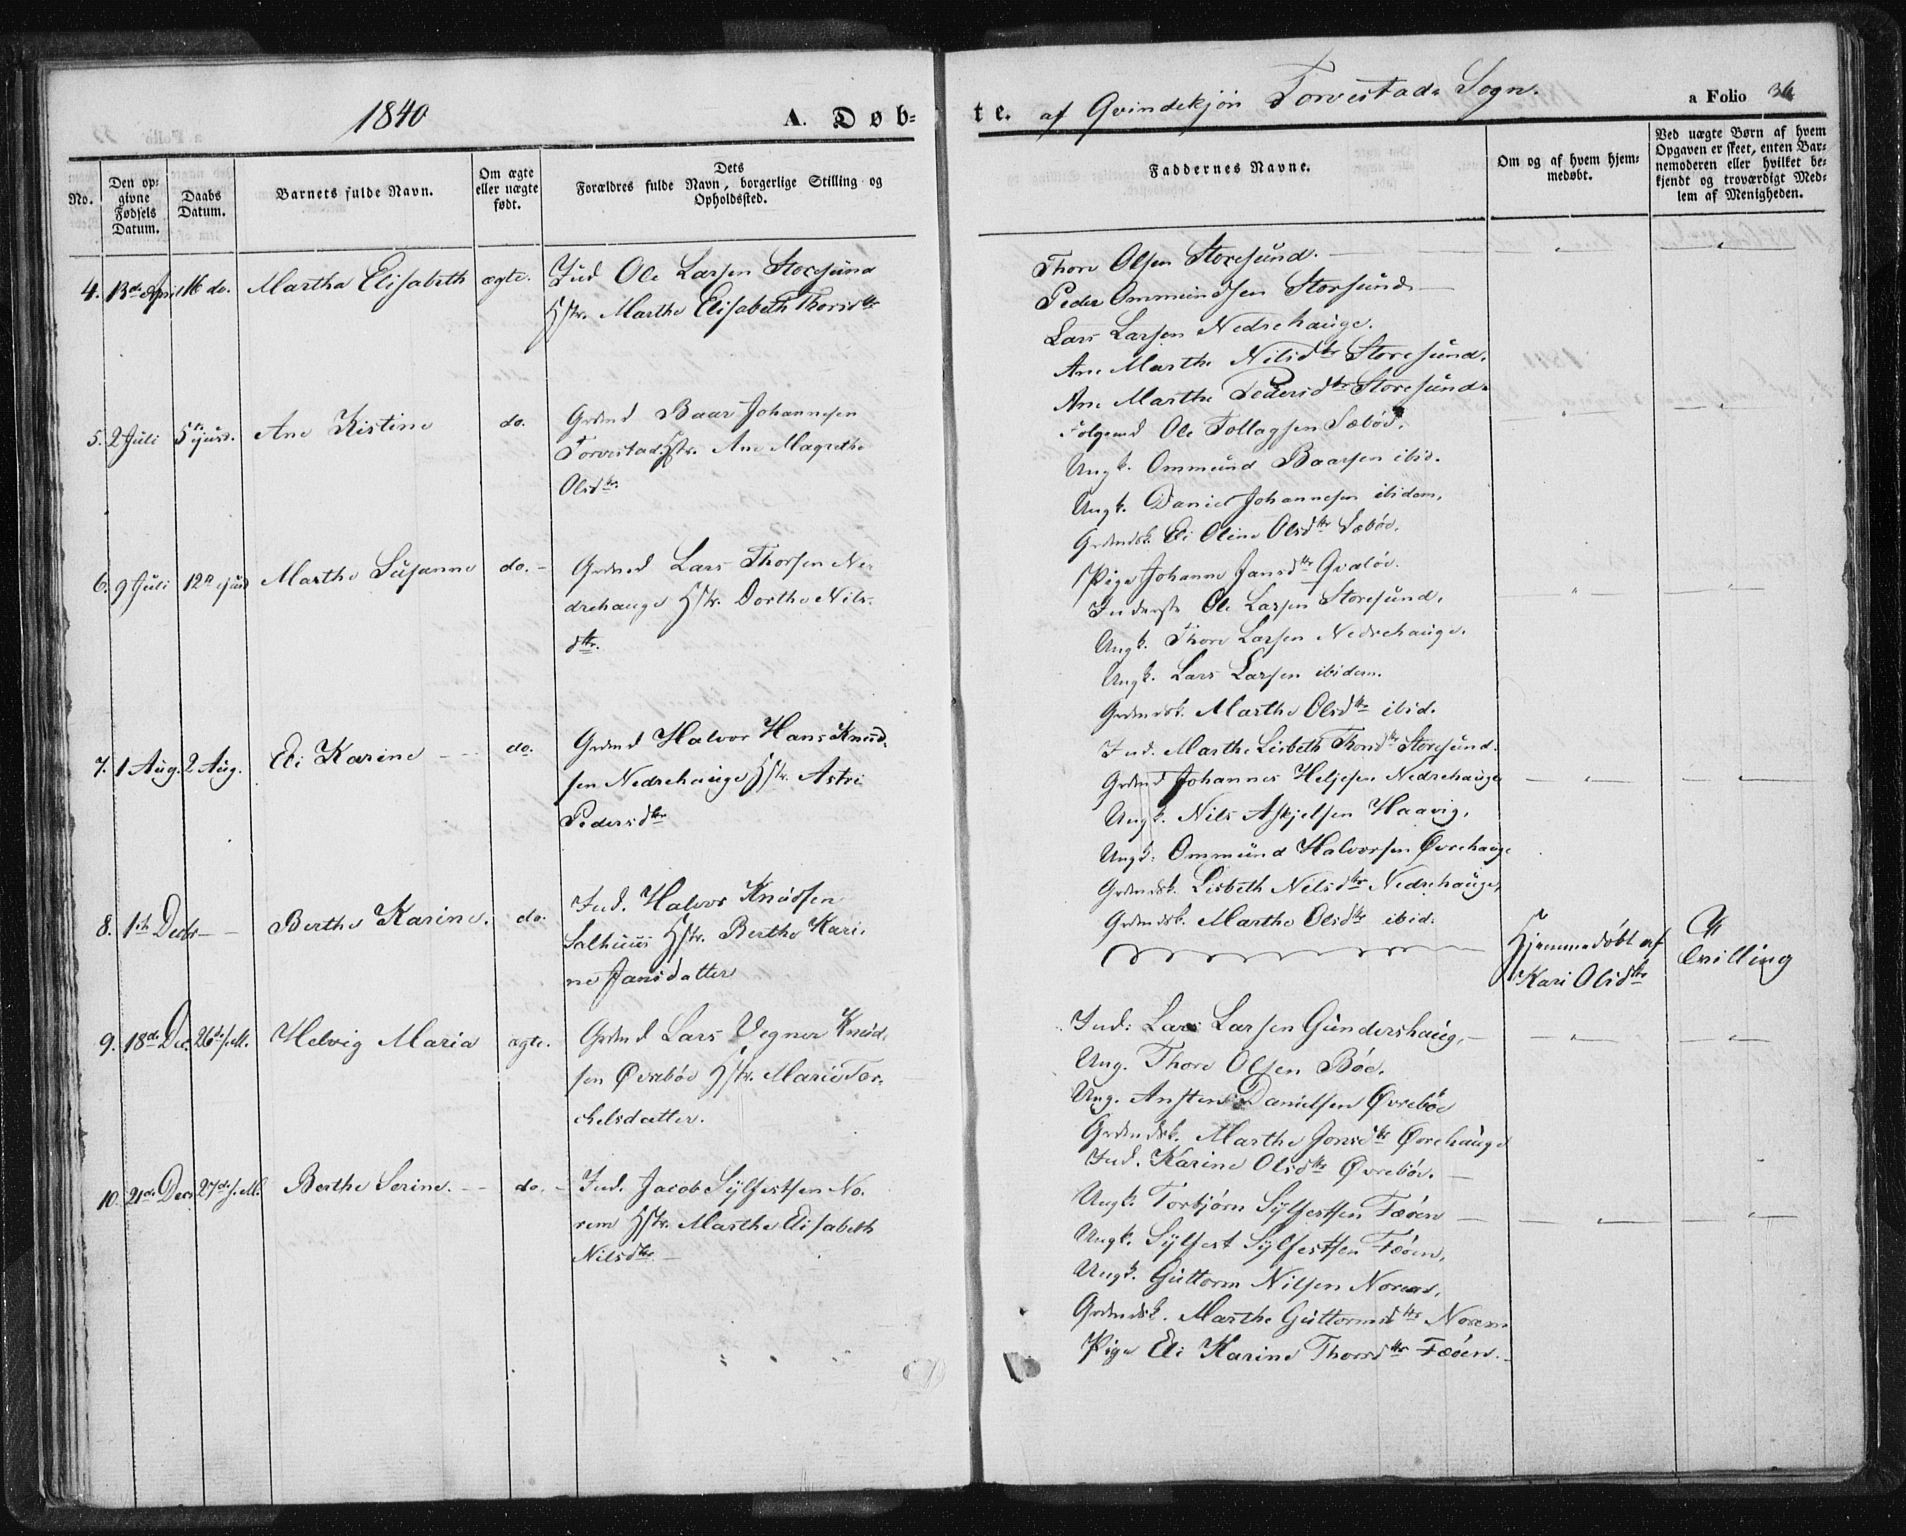 1840
A. Døb-
te. af Qvindekjön Torvestads Sogn.
a Folio 36
No.
Den op-
givne
Fødsels
Datum.
Daabs
Datum.
Barnets fulde Navn.
Om ægte
eller uægte
født.
Dets
Forældres fulde Navn, borgerlige Stilling og
Opholdssted.
Faddernes Navne.
Om og af hvem hjem-
medøbt.
Ved uægte Børn af hvem
Opgaven er skeet, enten Bar-
nemoderen eller hvilket be-
kjendt og troværdigt Med-
lem af Menigheden.
4. 13de April 16 do. Martha Elisabeth ægte. Ind Ole Larsen Storesund
Hstr. Marthe Elisabeth Thorsdtr
Thore Olsen Storesund.
Peder Ommundsen Storsund
Lars Larsen Nedrehauge.
Ane Marthe Nilsdtr Storesund.
Ane Marthe Pedersdtr Storesund.
5. 2 Juli 5te ejusd. Ane Kistine do. Grdmd Baar Johannesen
Torvestad. Hstr. Ane Magrethe
Olsdtr.
Folgemd Ole Tollagsen Sæböe.
Ungk. Ommund Baarsen ibid.
Ungk. Daniel Johannesen ibidem.
Grdmdsk. Eli Oline Olsdtr Sæböe.
Pige Johanne Jansdtr Qvalöe.
6. 9 Juli 12te ejusd Marthe Susanne do. Grdmd Lars Thorsen Ne-
drehauge Hstr. Dorthe Nils-
dtr.
Inderste Ole Larsen Storesund.
Ungk. Thore Larsen Nedrehauge.
Ungk. Lars Larsen ibidem.
Grdmdsk. Marthe Olsdtr ibid.
Ind. Marthe Lisbeth Thorsdtr Storesund.
7. 1 Aug. 2 Aug. Eli Karine do. Grdmd Halvor Hans Knud-
sen Nedrehauge Hstr. Astri
Pedersdtr
Grdmd Johannes Heljesen Nedrehauge
Ungk. Nils Askjelsen Haavig.
Ungk. Ommund Halvorsen Øvrehauge
Grdmdsk. Lisbeth Nilsdtr Nedrehauge.
Grdmdsk. Marthe Olsdtr ibid.
8. 1ste Decbr Berthe Karine. do. Ind. Halvor Knudsen
Salhuus Hstr. Berthe Kari-
ne Jansdatter
Hjemmedöbt af
Kari Olsdtr
Tvilling
9. 18de Dec. 26de s.M. Helvig Maria ægte. Grdmd Lars Vegner Knud-
sen Øvreböe Hstr. Marie Tor-
chelsdatter.
Ind: Lars Larsen Gundershaug.
Ung. Thore Olsen Böe.
Ung. Ansten Danielsen Øvreböe
Grdmdsk. Marthe Jonsdtr Øvrehauge
Ind. Karine Olsdtr Øvreböe.
10. 21de Decr 27de s.M. Berthe Serine. do. Ind. Jacob Sylfestsen No-
rem Hstr. Marthe Elisabeth
Nilsdtr
Ungk. Torbjörn Sylfestsen Fæöen
Ungk. Sylfest Sylfestsen Fæöen.
Ungk. Guttorm Nilsen Norem.
Grdmdsk. Marthe Guttormsdtr Norem
Pige Eli Karine Thorsdtr Fæöen.